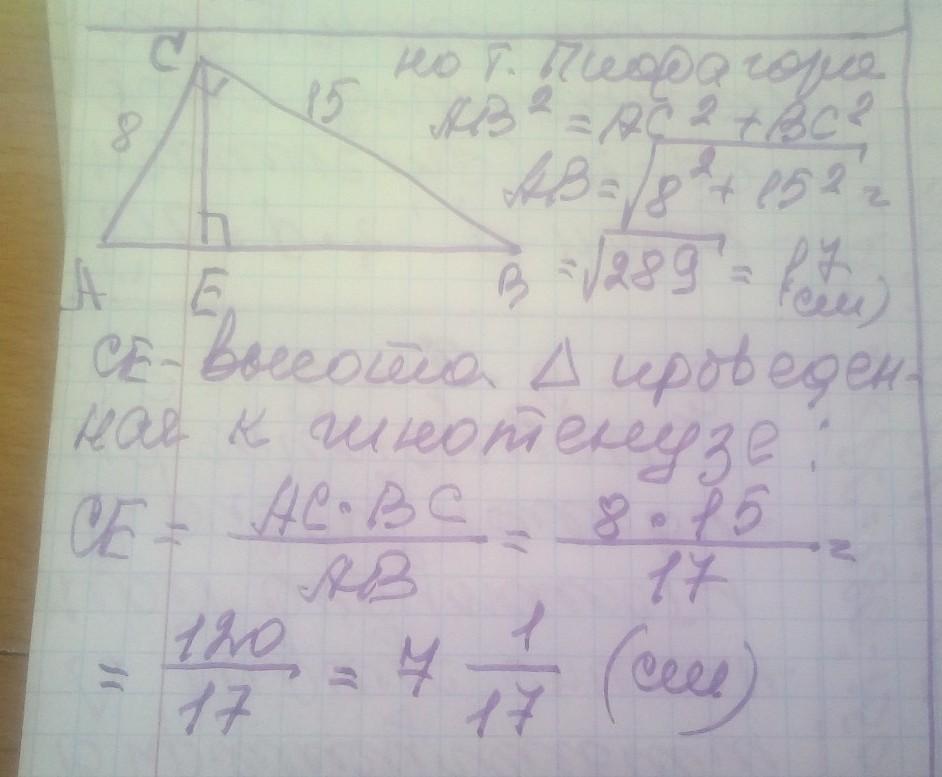 C
8
15
A
E
B
по т. Пифагора
AB² = AC² + BC²
AB = √8² + 15² =
= √289 = 17
(см)
CE - высота △ проведен-
ная к гипотенузе :
CE = AC·BC/AB = 8·15/17 =
= 120/17 = 7 1/17 (см)